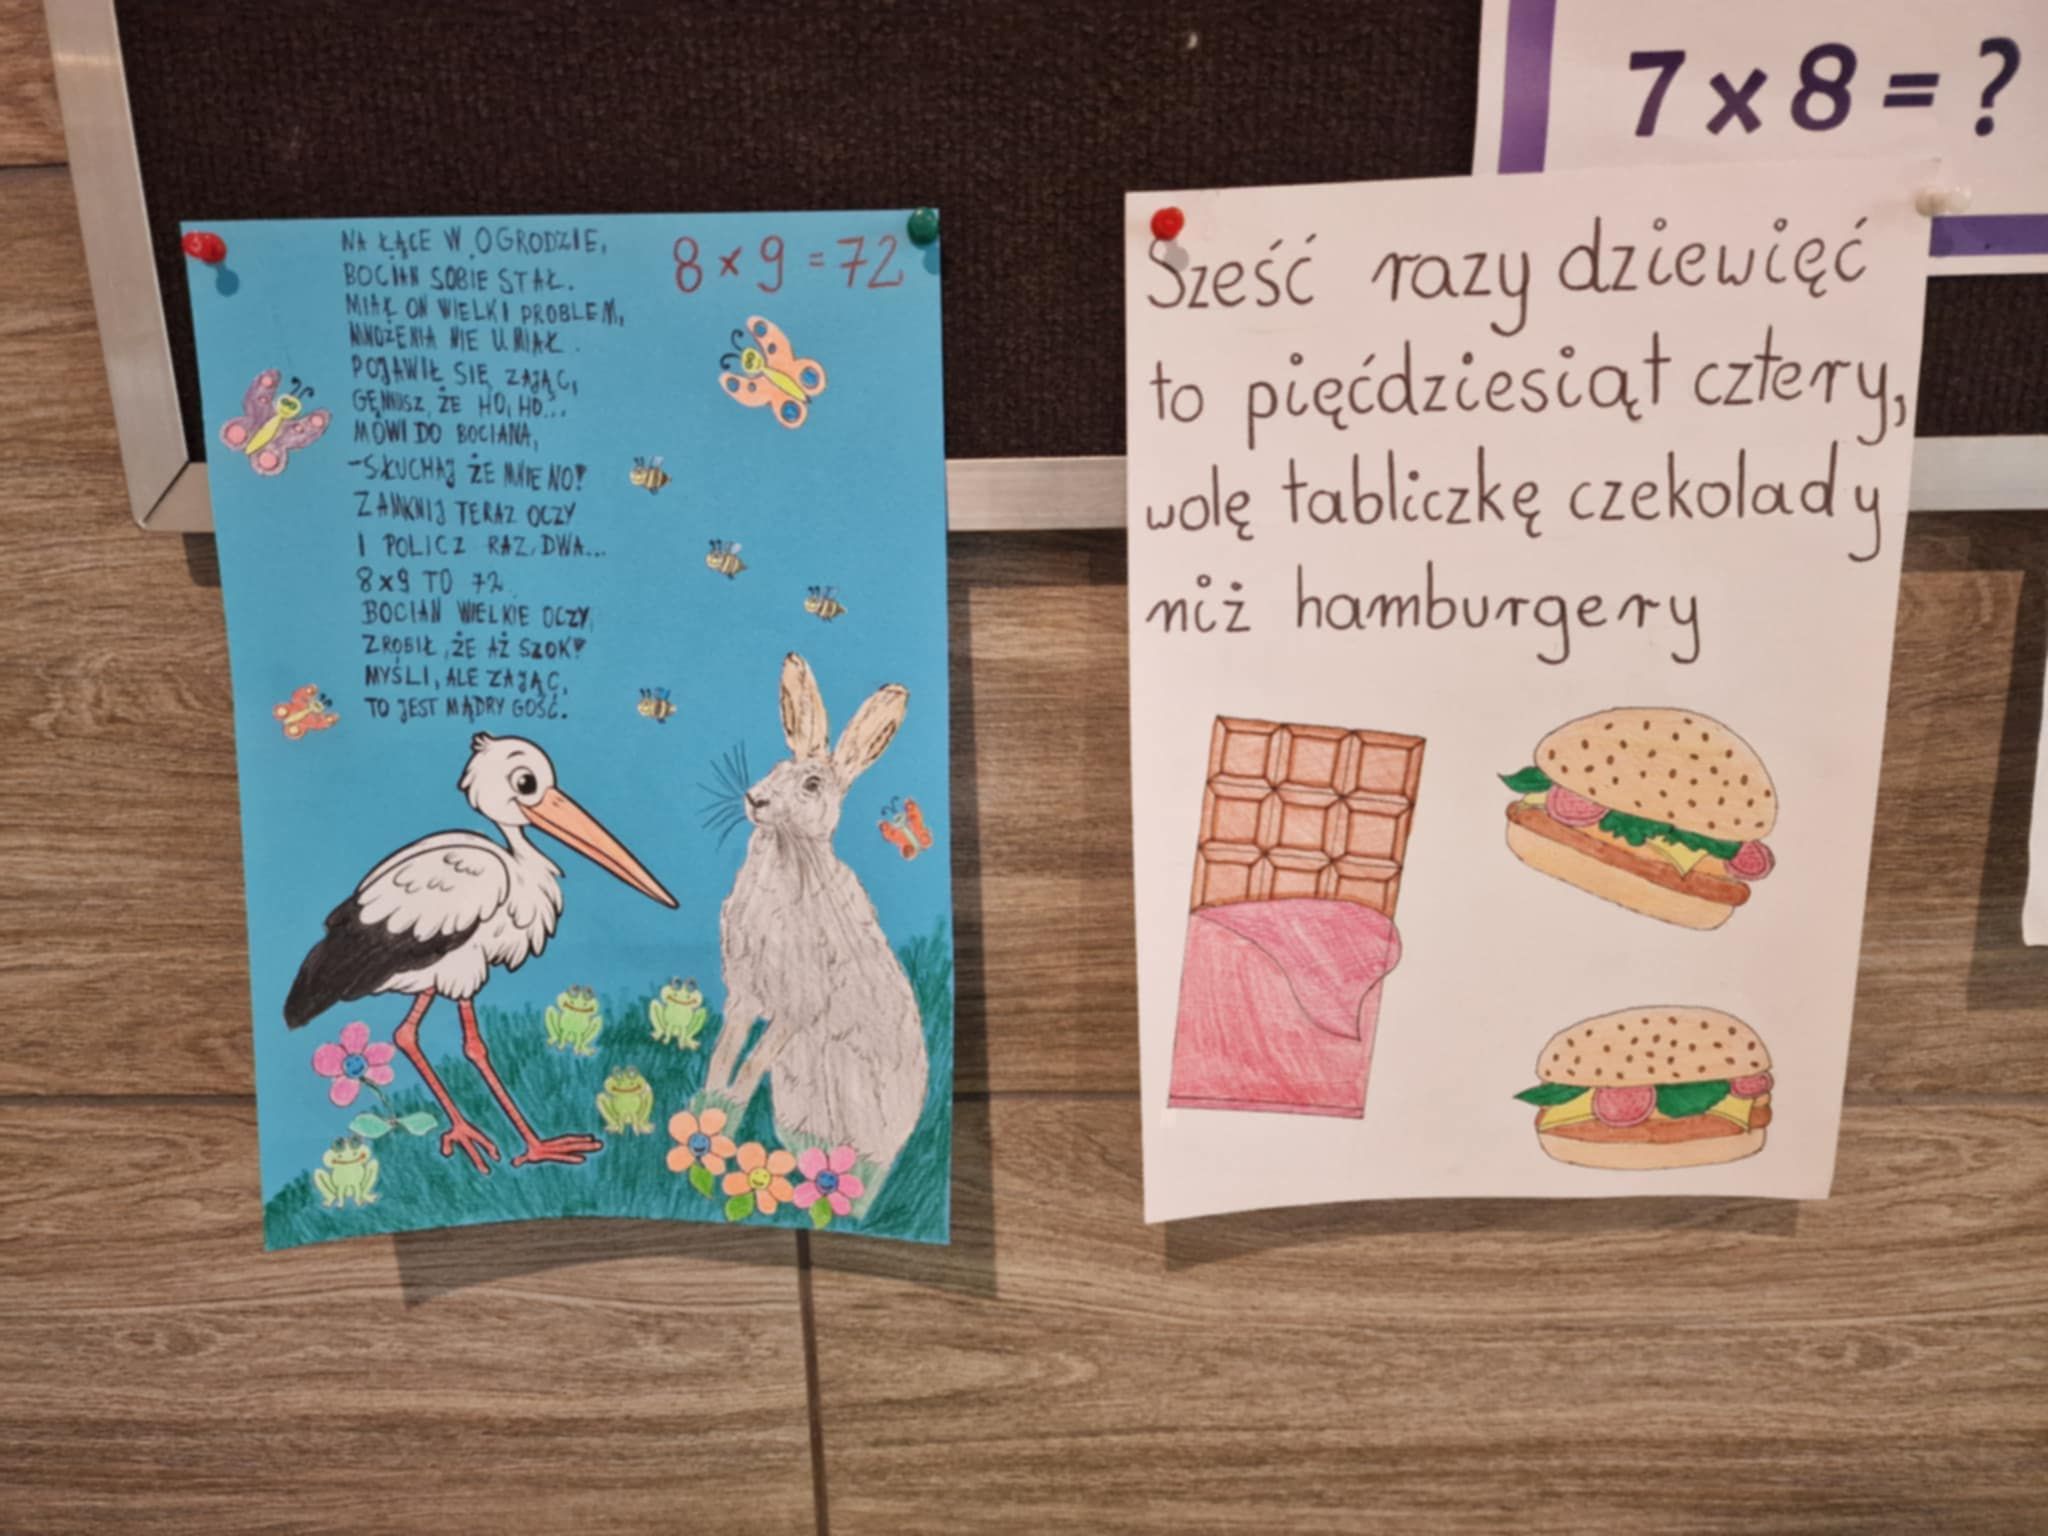 NA ŁĄCE W OGRODZIE,
BOCIAN SOBIE STAŁ.
MIAŁ ON WIELKI PROBLEM,
MNOŻENIA NIE UMIAŁ.
POJAWIŁ SIĘ ZAJĄC,
GĘNIUSZ, ŻE HO, HO...
MÓWI DO BOCIANA,
-SŁUCHAJ ŻE MNIE NO!
ZAMKNIJ TERAZ OCZY
I POLICZ RAZ, DWA...
8x9 TO 72.
BOCIAN WIELKIE OCZY,
ZROBIŁ, ŻE AŻ SZOK!
MYŚLI, ALE ZAJĄC,
TO JEST MĄDRY GOŚĆ.
8 x 9 = 72
7 x 8 = ?
Sześć razy dziewięć
to pięćdziesiąt cztery,
wolę tabliczkę czekolady
niż hamburgery